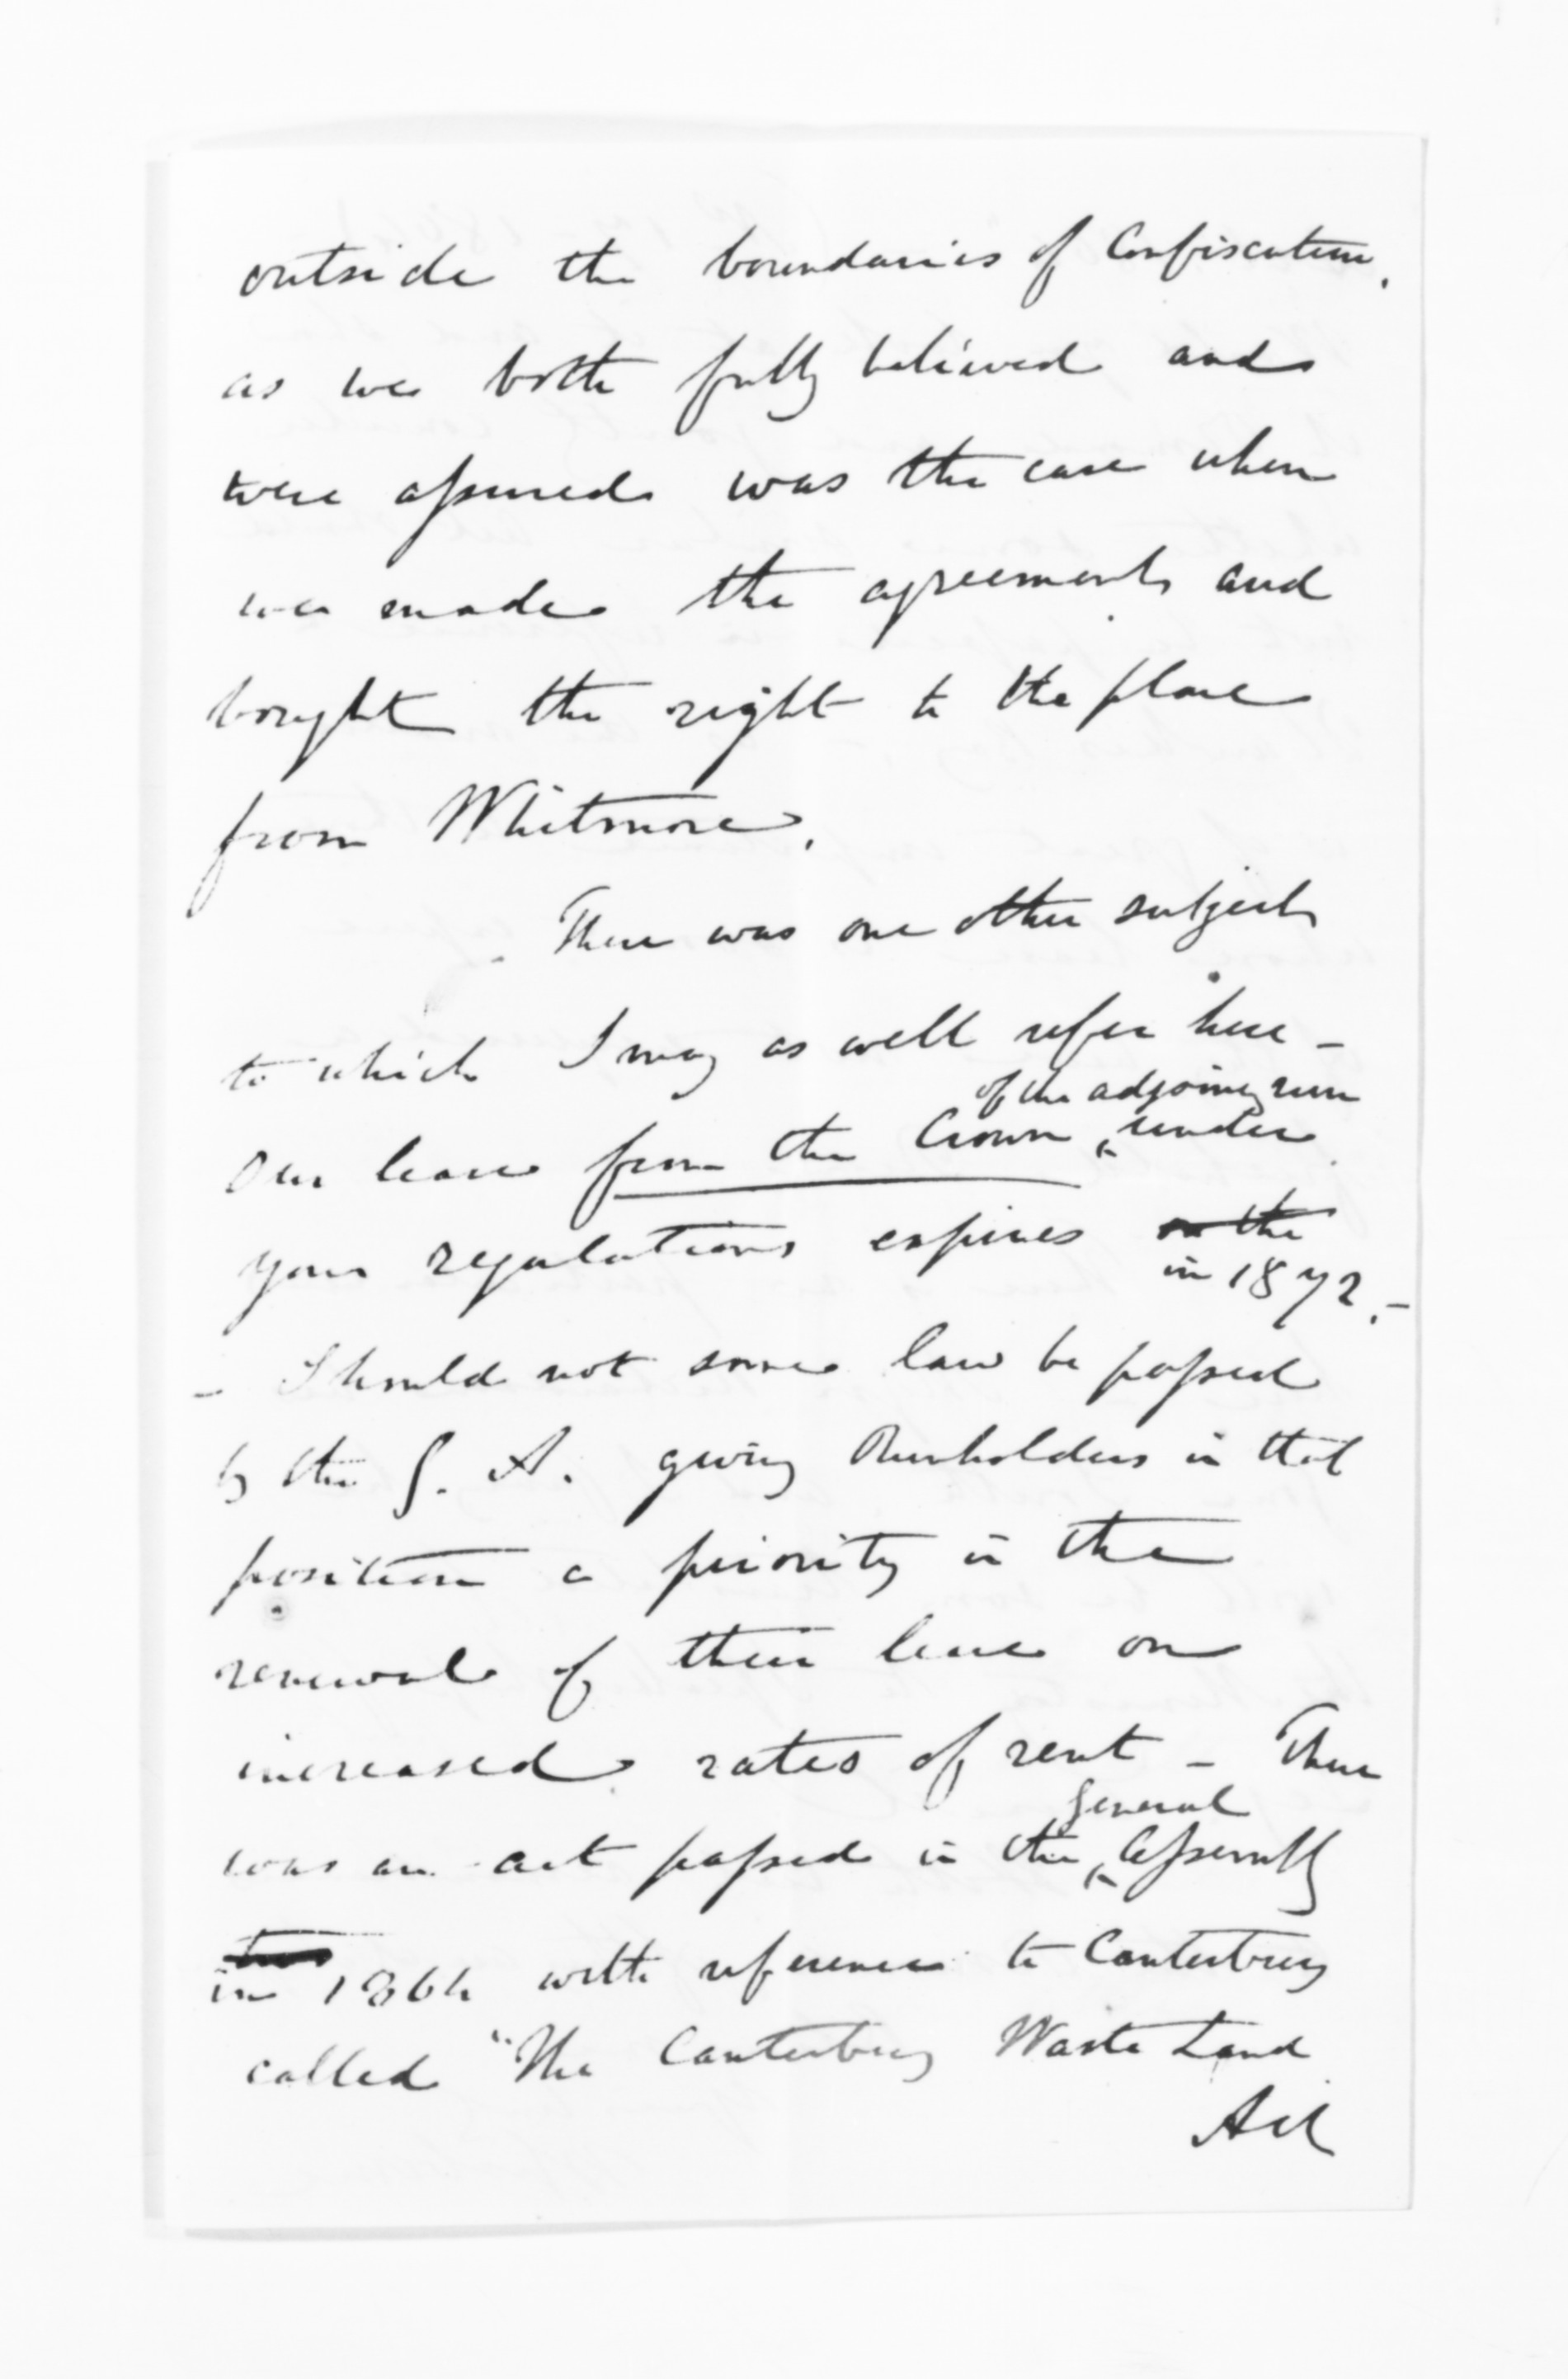 outside the boundaries of Confiscation,
as we both fully believed and
were assured was the case when
we made the agreement, and
bought the right to the place
from Whitmore.
There was one other subject
to which I may as well refer here -
of the adjoining run
Our lease from the Crown ^ under
your regulations expires on the
in 1872. -
- Should not some law be passed
by the G. A. giving Runholders in that
position a priority in the
renewal of their lease on
increased rates of rent - There
General
was an act passed in the ^ Assembly
in 1864 with reference to Canterbury
called "The Canterbury Waste Land
Act